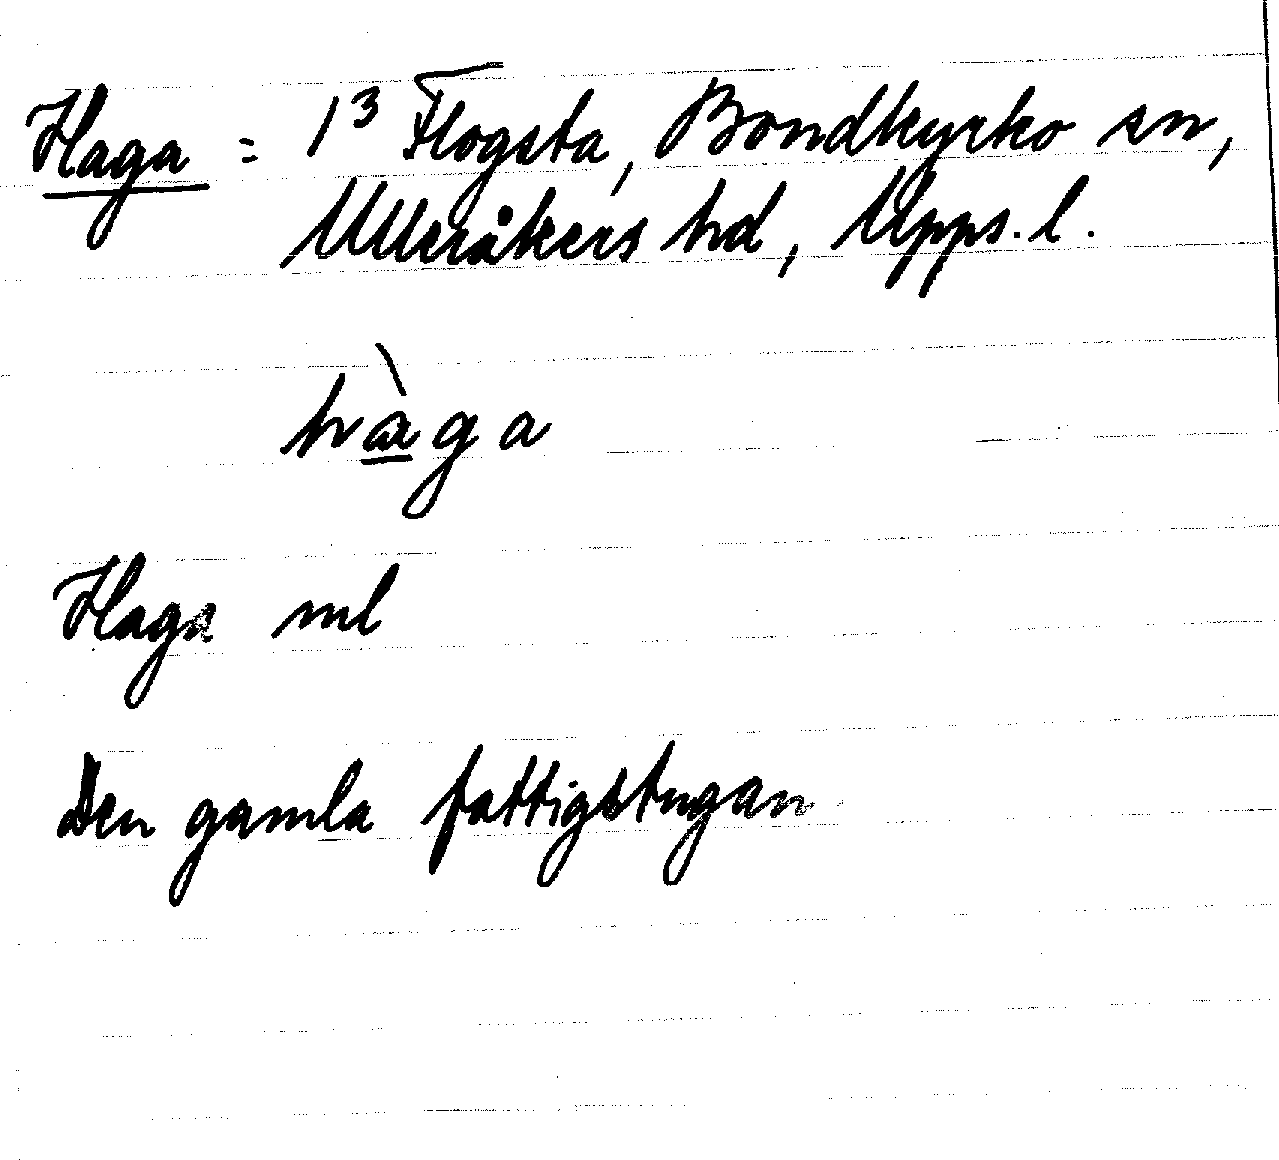 Haga = 1³ Flogsta, Bondkyrko sn,
Ulleråkers hd, Upps. l.
hàga
Haga ml
Den gamla fattigstugan